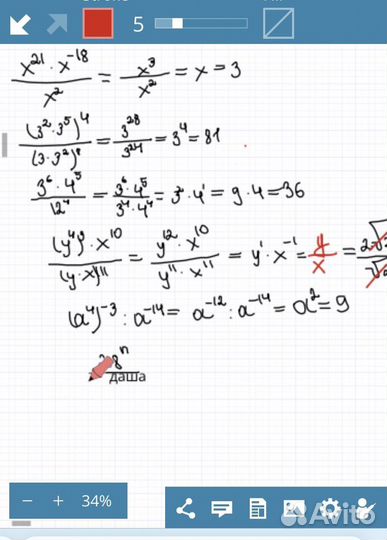 5
x²¹ · x⁻¹⁸ / x² = x³ / x² = x = 3
(3² · 3⁵)⁴ / (3 · 3²)⁸ = 3²⁸ / 3²⁴ = 3⁴ = 81
3⁶ · 4⁵ / 12⁴ = 3⁶ · 4⁵ / 3⁴ · 4⁴ = 3² · 4¹ = 9 · 4 = 36
(y⁴)³ · x¹⁰ / (y · x)¹¹ = y¹² · x¹⁰ / y¹¹ · x¹¹ = y¹ · x⁻¹ = y / x =
(a⁴)⁻³ : a⁻¹⁴ = a⁻¹² : a⁻¹⁴ = a² = 9
8ⁿ
даша
− + 34%
Avito